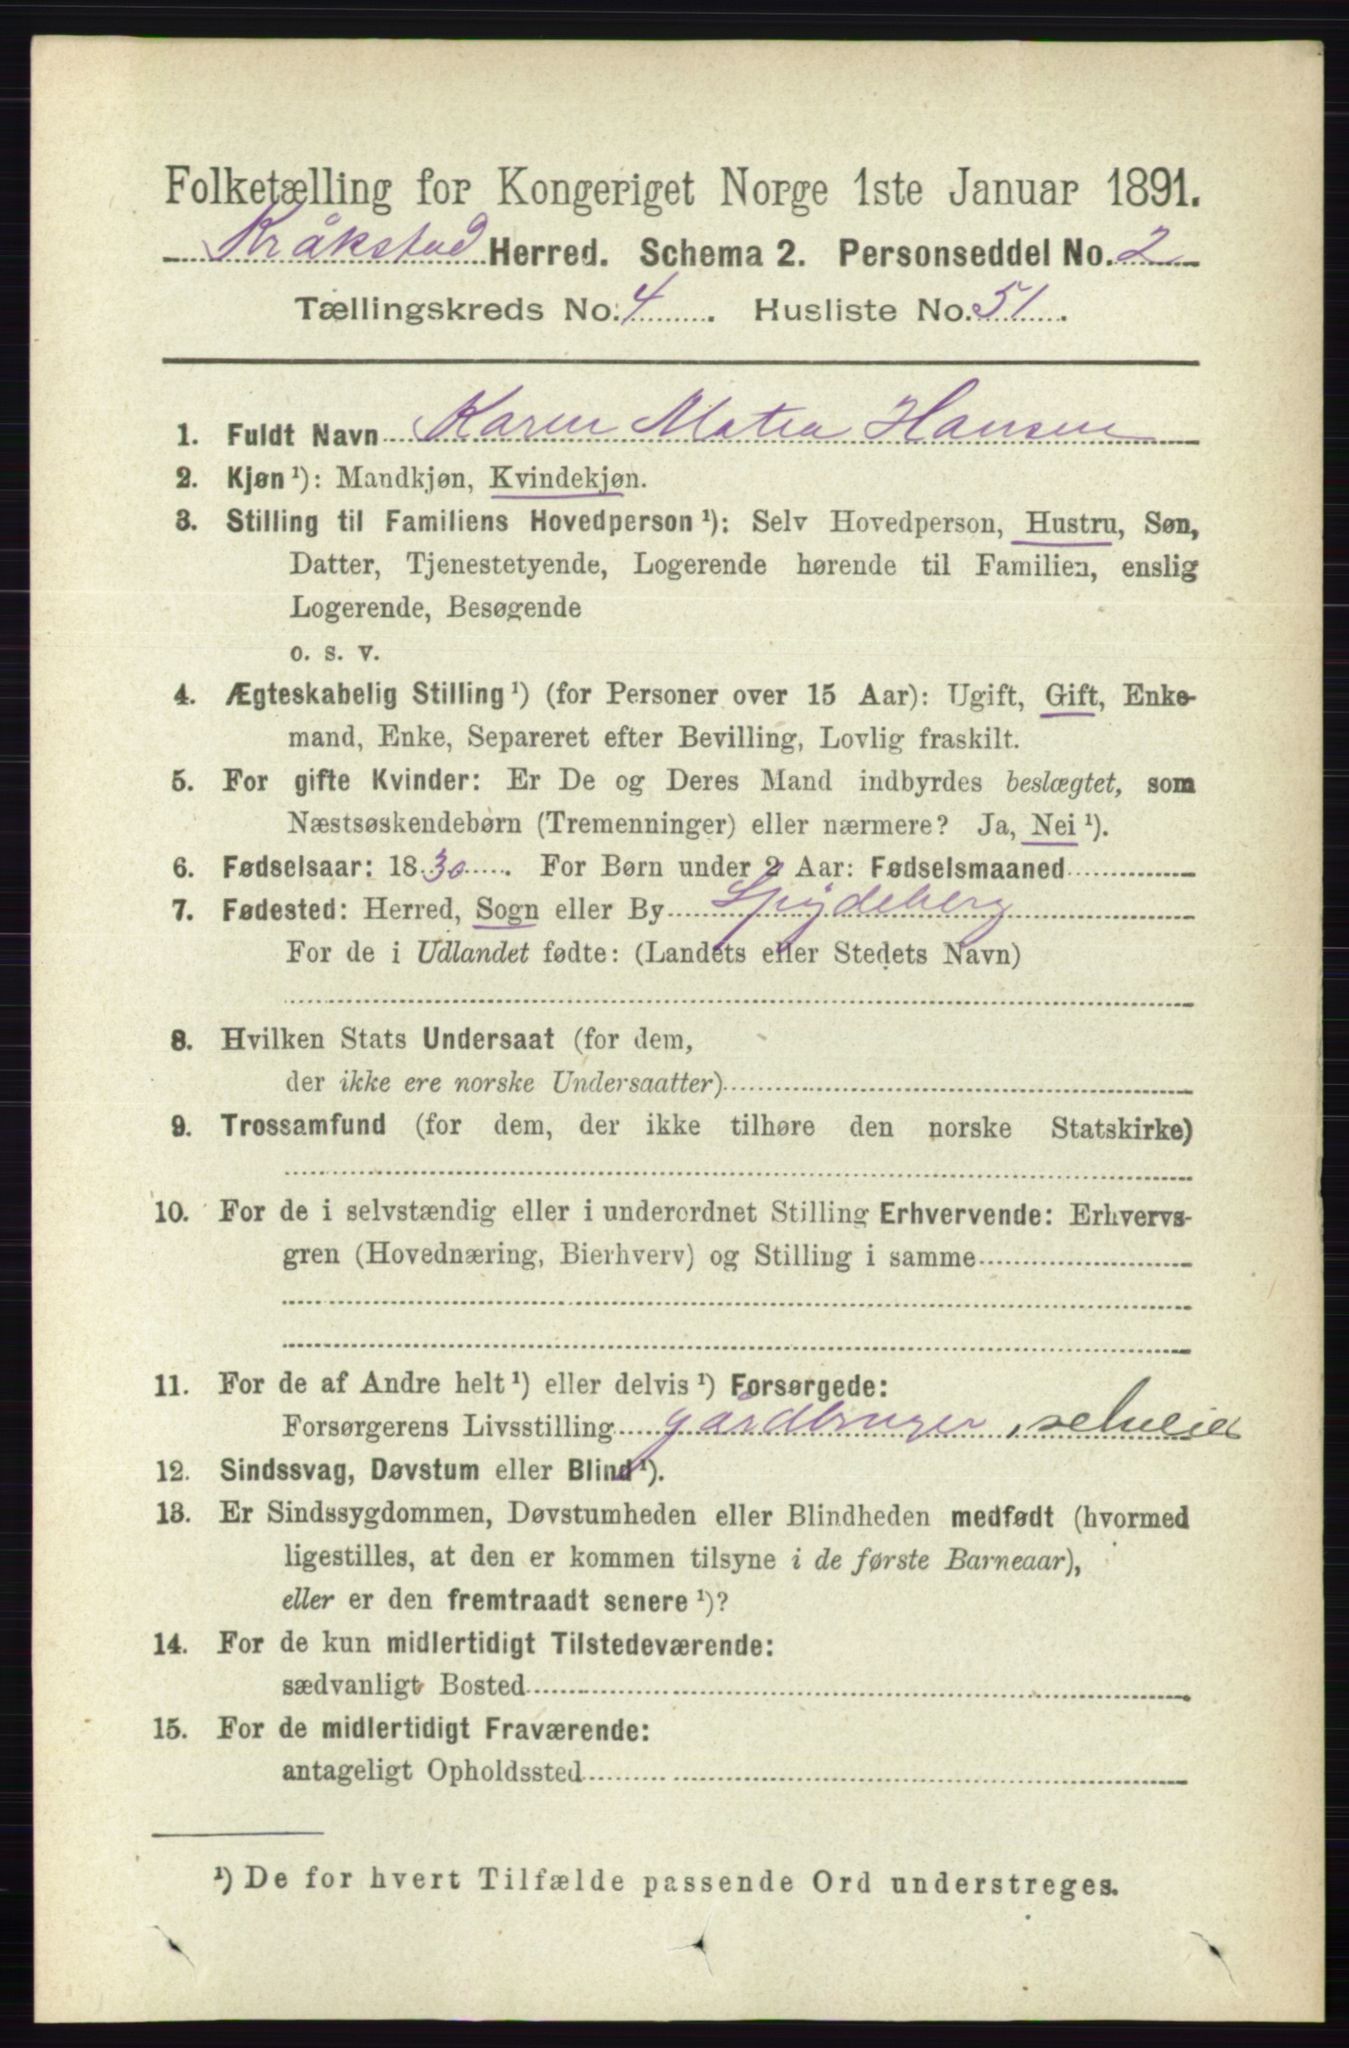 Folketælling for Kongeriget Norge 1ste Januar 1891.
Kråkstad Herred. Schema 2. Personseddel No. 2
Tællingskreds No. 4. Husliste No. 51.
1. Fuldt Navn Karen Matea Hansen
2. Kjøn ¹): Mandkjøn, Kvindekjøn.
3. Stilling til Familiens Hovedperson ¹): Selv Hovedperson, Hustru, Søn,
Datter, Tjenestetyende, Logerende hørende til Familien, enslig
Logerende, Besøgende
o. s. v.
4. Ægteskabelig Stilling ¹) (for Personer over 15 Aar): Ugift, Gift, Enke-
mand, Enke, Separeret efter Bevilling, Lovlig fraskilt.
5. For gifte Kvinder: Er De og Deres Mand indbyrdes beslægtet, som
Næstsøskendebørn (Tremenninger) eller nærmere? Ja, Nei ¹).
6. Fødselsaar: 1830. For Børn under 2 Aar: Fødselsmaaned
7. Fødested: Herred, Sogn eller By Spydeberg
For de i Udlandet fødte: (Landets eller Stedets Navn)
8. Hvilken Stats Undersaat (for dem,
der ikke ere norske Undersaatter)
9. Trossamfund (for dem, der ikke tilhøre den norske Statskirke)
10. For de i selvstændig eller i underordnet Stilling Erhvervende: Erhvervs-
gren (Hovednæring, Bierhverv) og Stilling i samme
11. For de af Andre helt ¹) eller delvis ¹) Forsørgede:
Forsørgerens Livsstilling gårdbruger, selveier
12. Sindssvag, Døvstum eller Blind ¹).
13. Er Sindssygdommen, Døvstumheden eller Blindheden medfødt (hvormed
ligestilles, at den er kommen tilsyne i de første Barneaar),
eller er den fremtraadt senere ¹)?
14. For de kun midlertidigt Tilstedeværende:
sædvanligt Bosted
15. For de midlertidigt Fraværende:
antageligt Opholdssted
¹) De for hvert Tilfælde passende Ord understreges.